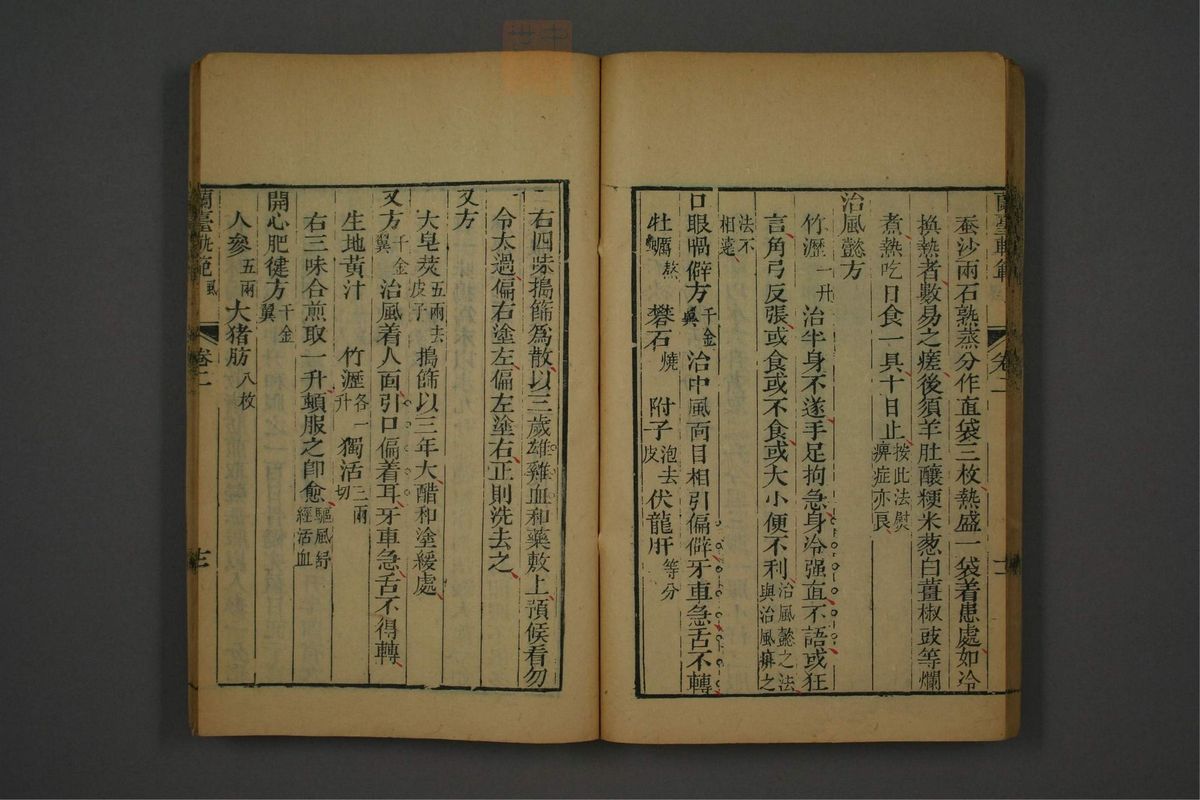 蘭臺軌範
卷二
十二
蚕沙兩石熟蒸分作直袋三枚熱盛一袋着患處如冷
換熱者數易之瘥後須羊肚釀粳米葱白薑椒豉等爛
煮熱吃日食一具十日止按此法熨痺症亦良
治風懿方
竹瀝一升治半身不遂手足拘急身冷强直不語或狂
言角弓反張或食或不食或大小便不利治風懿之法與治風痱之
法不相遠
口眼喎僻方千金翼治中風面目相引偏僻牙車急舌不轉
牡蠣熬礬石燒附子泡去皮伏龍肝等分
右四味搗篩爲散以三歲雄雞血和藥敷上預候看勿
令太過偏右塗左偏左塗右正則洗去之
又方
大皂莢五兩去皮子搗篩以三年大醋和塗緩處
又方千金翼治風着人面引口偏着耳牙車急舌不得轉
生地黃汁竹瀝各一升獨活三兩切
右三味合煎取一升頓服之卽愈驅風舒經活血
開心肥健方千金翼
人參五兩大猪肪八枚
蘭臺軌範風
卷二